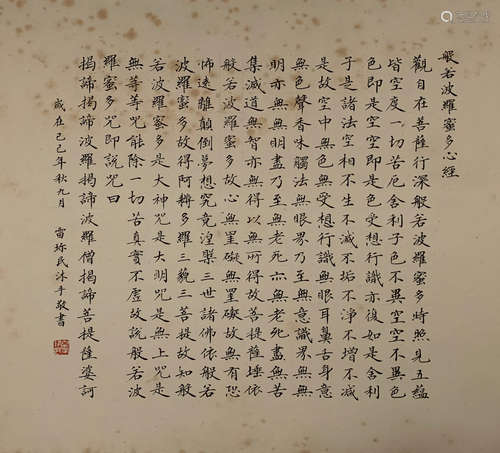 般若波羅蜜多心經
觀自在菩薩行深般若波羅蜜多時照見五蘊
皆空度一切苦厄舍利子色不異空空不異色
色即是空空即是色受想行識亦復如是舍利
子是諸法空相不生不滅不垢不淨不增不減
是故空中無色無受想行識無眼耳鼻舌身意
無色聲香味觸法無眼界乃至無意識界無無
明亦無無明盡乃至無老死亦無老死盡無苦
集滅道無智亦無得以無所得故菩提薩埵依
般若波羅蜜多故心無罣礙無罣礙故無有恐
怖遠離顛倒夢想究竟涅槃三世諸佛依般若
波羅蜜多故得阿耨多羅三藐三菩提故知般
若波羅蜜多是大神咒是大明咒是無上咒是
無等等咒能除一切苦真實不虛故說般若波
羅蜜多咒即說咒曰
揭諦揭諦波羅揭諦波羅僧揭諦菩提薩婆訶
歲在己巳年秋九月 雷珍民沐手敬書